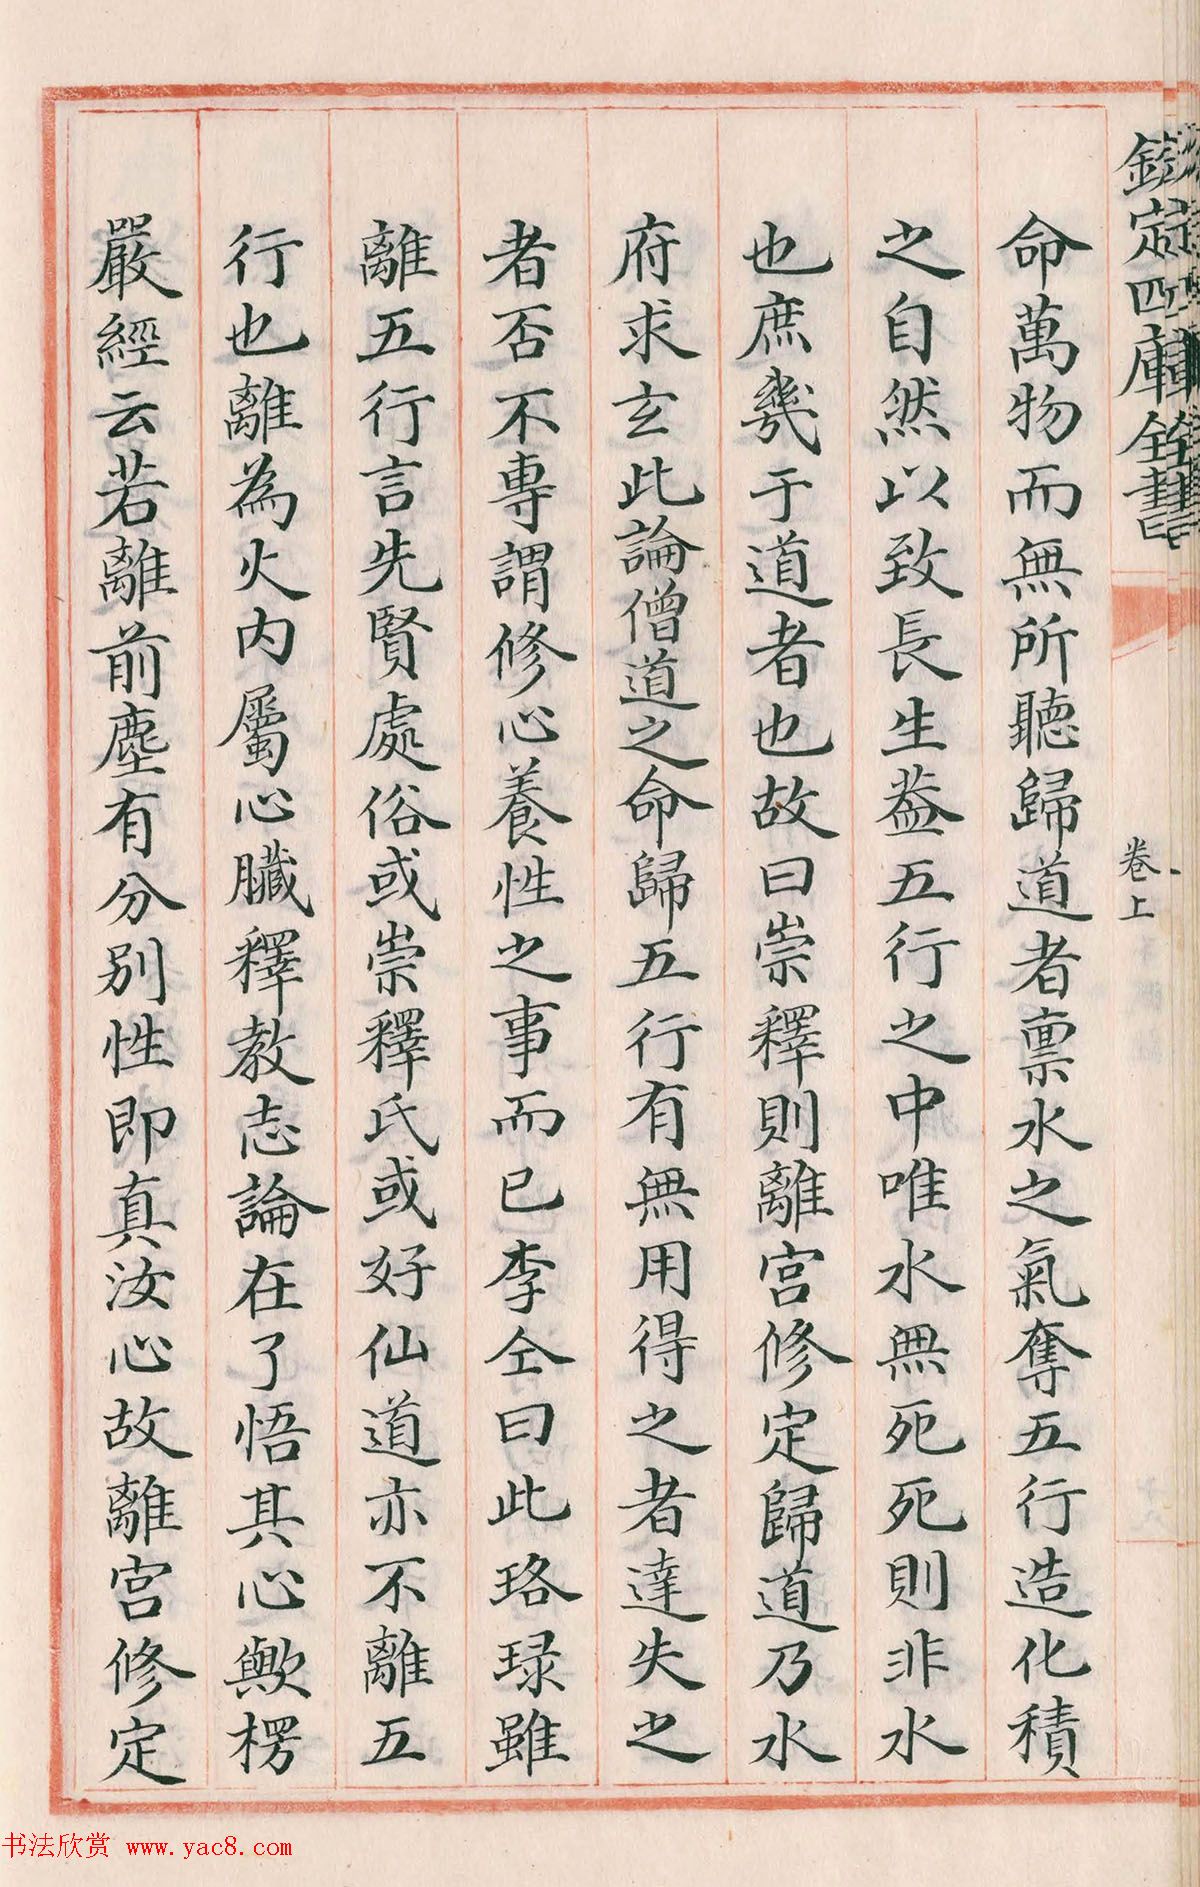 欽定四庫全書
卷上
命萬物而無所聽歸道者禀水之氣奪五行造化積
之自然以致長生葢五行之中唯水無死死則非水
也庶幾于道者也故曰崇釋則離宮修定歸道乃水
府求玄此論僧道之命歸五行有無用得之者達失之
者否不專謂修心養性之事而已李仝曰此珞琭雖
離五行言先賢處俗或崇釋氏或好仙道亦不離五
行也離為火內屬心臟釋教志論在了悟其心歟楞
嚴經云若離前塵有分別性即真汝心故離宮修定
书法欣赏 www.yac8.com